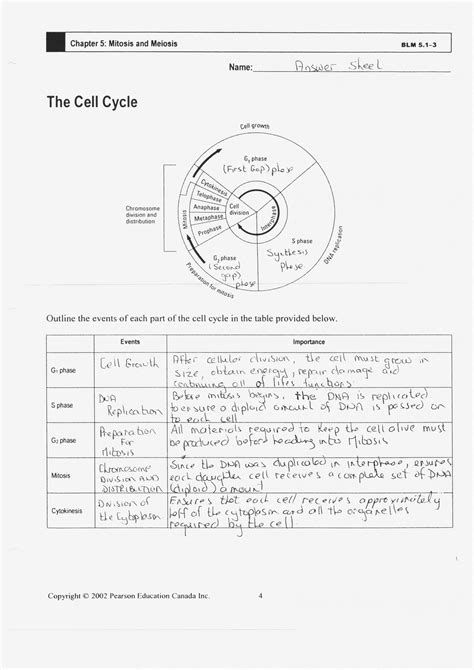 Chapter 5: Mitosis and Meiosis
BLM 5.1–3
Name: Answer Sheet
The Cell Cycle
Cell growth
G1 phase
(First Gap) phase
Cytokinesis
Telophase
Anaphase
Metaphase
Prophase
Cell division
Interphase
Mitosis
Chromosome
division and
distribution
S phase
Synthesis
phase
DNA replication
G2 phase
(Second
gap)
phase
Preparation for mitosis
Outline the events of each part of the cell cycle in the table provided below.
Events
Importance
G1 phase
Cell Growth
After cellular division, the cell must grow in
size, obtain energy, repair damage and
continuing all of lifes functions
S phase
DNA
Replication
Before mitosis begins, the DNA is replicated
to ensure a diploid amount of DNA is passed on
to each cell.
G2 phase
Preparation
For
Mitosis
All materials required to keep the cell alive must
be produced before heading into Mitosis
Mitosis
Chromosome
DIVISION AND
DISTRIBUTION
Since the DNA was duplicated in interphase, ensures
each daughter cell receives a complete set of DNA
(diploid) amount
Cytokinesis
Division of
the Cytoplasm
Ensures that each cell receives approximately
half of the cytoplasm and all the organelles
required by the cell.
Copyright © 2002 Pearson Education Canada Inc.
4